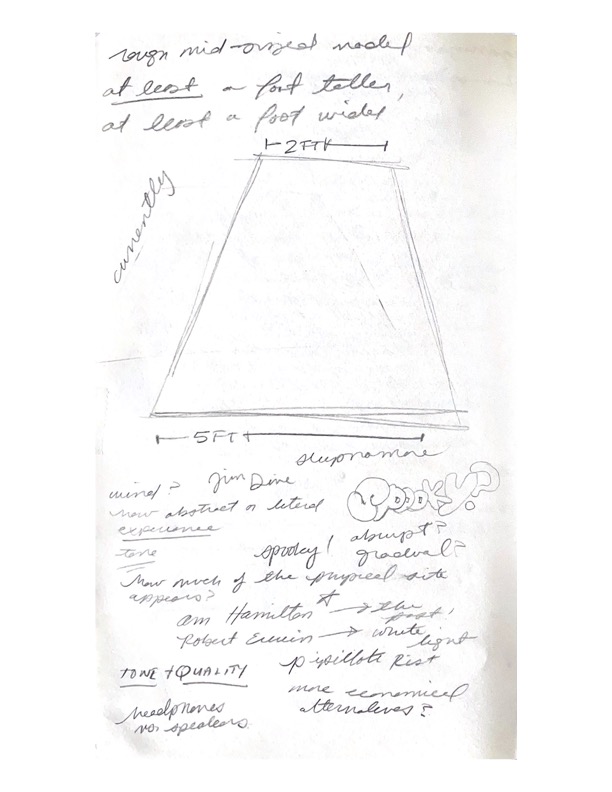 rough mid-sized model
at least a foot taller,
at least a foot wider
2FT
currently
5FT
sleepnomore
mind? Jim Dine
how abstract or literal
experience
SPOOKY?
tone
spooky! abrupt?
gradual?
how much of the physical site
appears?
ann Hamilton → the past!
Robert Erwin → white light
TONE + QUALITY
pipillote Rist
headphones
vs. speakers
more economical
alternatives?